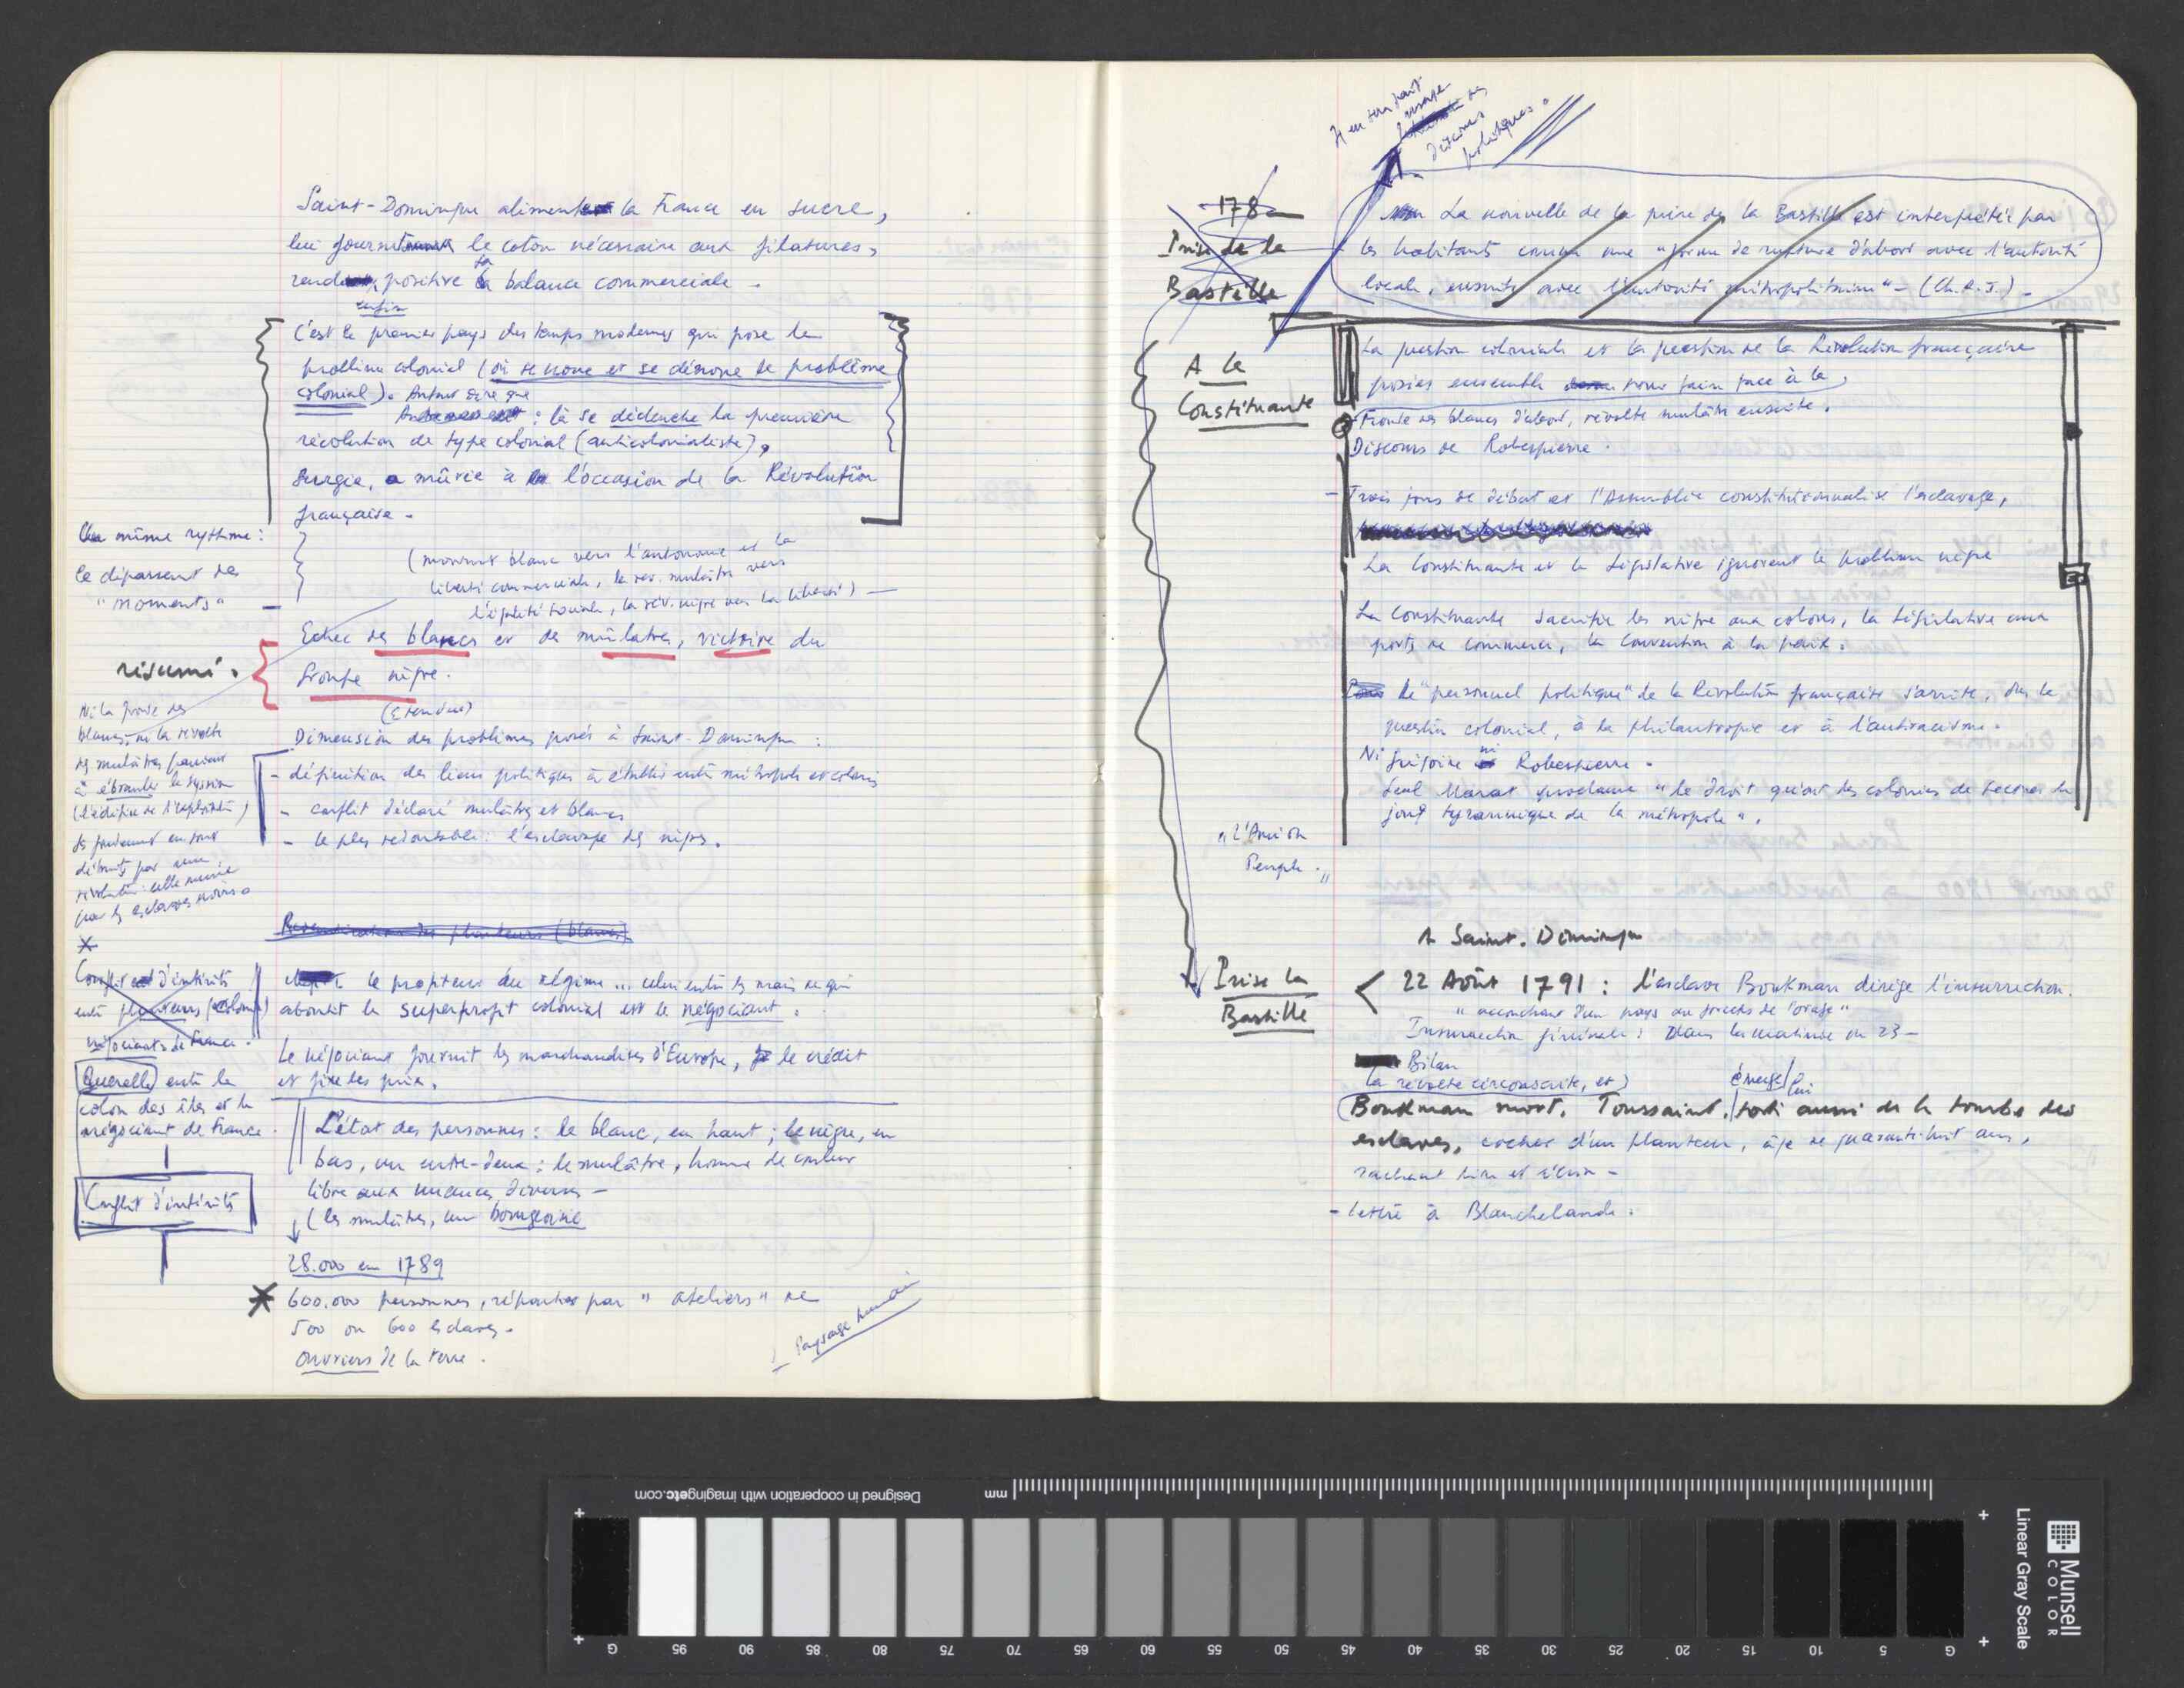 Saint-Domingue alimente la France en sucre,
lui fournit le coton nécessaire aux filatures,
rend positive sa balance commerciale -
enfin
C'est le premier pays des temps modernes qui pose le
problème colonial (où se noue et se dénoue le problème
colonial). Autant dire que
: là se déclenche la première
révolution de type colonial (anticolonialiste),
surgie, mûrie à l'occasion de la Révolution
française -
même rythme :
le dépassent des
"moments"
(mouvmt blanc vers l'autonomie et la
liberté commerciale, la rev. mulâtre vers
l'égalité sociale, la rév. nègre vers la liberté) -
Echec des blancs et des mulâtres, victoire du
groupe nègre.
résumé.
Ni la fronde des
blancs, ni la révolte
des mulâtres
à ébranler le système
(l'édifice de l'exploitation)
détruits par une
révolution : celle menée
par les esclaves noirs
(Etendue)
Dimension des problèmes posés à Saint-Domingue :
- définition des liens politiques à établir entre métropole et colonie
- conflit déclaré mulâtres et blancs
- le plus redoutable : l'esclavage des nègres.
Revendications des planteurs (blancs)
Conflit d'intérêts
entre planteurs (colons)
négociants de France.
Querelle entre le
colon des îles et le
négociant de France.
Conflit d'intérêts
le profiteur du régime... celui entre les mains de qui
aboutit le superprofit colonial est le négociant.
Le négociant fournit les marchandises d'Europe, le crédit
et fixe les prix.
L'état des personnes : le blanc, en haut ; le nègre, en
bas, un entre-deux : le mulâtre, homme de couleur
libre aux nuances diverses -
(les mulâtres, une bourgeoisie
28.000 en 1789
600.000 personnes, réparties par "ateliers" de
500 ou 600 esclaves.
Ouvriers de la terre.
Paysage humain
Il en sera fait
usage
des
discours
politiques.
178
Prise de la
Bastille
La nouvelle de la prise de la Bastille est interprétée par
les habitants comme une "forme de rupture d'abord avec l'autorité
locale, ensuite avec l'autorité métropolitaine" - (Ch. A. J.) -
A la
Constituante
La question coloniale et la question de la Révolution française
posées ensemble pour faire face à la
- Fronde des blancs d'abord, révolte mulâtre ensuite.
Discours de Robespierre.
- Trois jours de débat et l'Assemblée constitutionnalise l'esclavage,
La Constituante et la Législative ignorent le problème nègre
La Constituante sacrifie les nègres aux colons, la Législative aux
ports de commerce, la Convention à la paix.
Le "personnel politique" de la Révolution française s'arrête, sur la
question coloniale, à la philantropie et à l'antiracisme.
Ni Grégoire ni Robespierre -
Seul Marat proclame "le droit qu'ont les colonies de secouer le
joug tyrannique de la métropole".
"L'Ami du
Peuple."
A Saint-Domingue
Prise la
Bastille
< 22 Août 1791 : l'esclave Boukman dirige l'insurrection.
"accouchant d'un pays au forceps de l'orage"
Insurrection générale : Dans la matinée du 23 -
Bilan
la révolte circonscrite, et
Boukman mort. Toussaint, émerge/lui
sorti aussi de la tombe des
esclaves, cocher d'un planteur, âgé de quarante-huit ans,
sachant lire et écrire -
- lettre à Blanchelande.
Designed in cooperation with imagingetc.com
mm
G 95 90 85 80 75 70 65 60 55 50 45 40 35 30 25 20 15 10 5 G
Linear Gray Scale
Munsell
COLOR